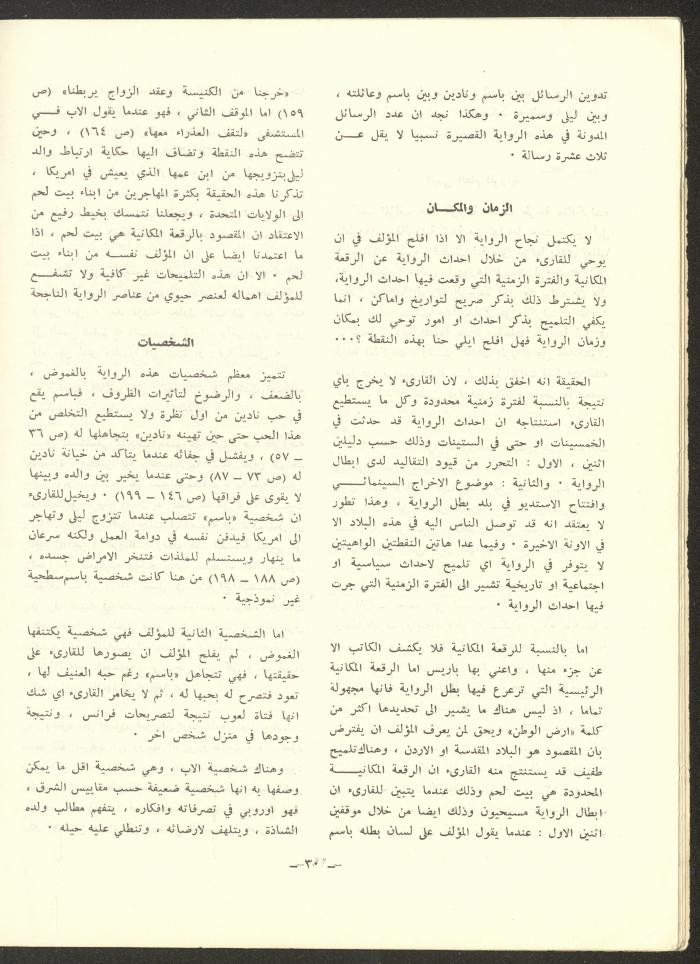 تدوين الرسائل بين باسم ونادين وبين باسم وعائلته ،
وبين ليلى وسميرة ٠ وهكذا نجد ان عدد الرسائل
المدونة في هذه الرواية القصيرة نسبيا لا يقل عـــن
ثلاث عشرة رسالة ٠
الزمان والمكـــان
لا يكتمل نجاح الرواية الا اذا افلح المؤلف في ان
يوحي للقارىء من خلال احداث الرواية عن الرقعة
المكانية والفترة الزمنية التي وقعت فيها احداث الرواية،
ولا يشترط ذلك بذكر صريح لتواريخ واماكن ، انما
يكفي التلميح بذكر احداث او امور توحي لك بمكان
وزمان الرواية فهل افلح ايلي حنا بهذه النقطة ؟٠٠٠
الحقيقة انه اخفق بذلك ، لان القارىء لا يخرج باي
نتيجة بالنسبة لفترة زمنية محدودة وكل ما يستطيع
القارىء استنتاجه ان احداث الرواية قد حدثت في
الخمسينات او حتى في الستينات وذلك حسب دليلين
اثنين ، الاول : التحرر من قيود التقاليد لدى ابطال
الرواية ٠ والثانية : موضوع الاخراج السينمائـــي
وافتتاح الاستديو في بلد بطل الرواية ، وهذا تطور
لا يعتقد انه قد توصل الناس اليه في هذه البلاد الا
في الاونة الاخيرة ٠ وفيما عدا هاتين النقطتين الواهيتين
لا يتوفر في الرواية اي تلميح لاحداث سياسية او
اجتماعية او تاريخية تشير الى الفترة الزمنية التي جرت
فيها احداث الرواية ٠
اما بالنسبة للرقعة المكانية فلا يكشف الكاتب الا
عن جزء منها ، واعني بها باريس اما الرقعة المكانية
الرئيسية التي ترعرع فيها بطل الرواية فانها مجهولة
تماما ، اذ ليس هناك ما يشير الى تحديدها اكثر من
كلمة «ارض الوطن» ويحق لمن يعرف المؤلف ان يفترض
بان المقصود هو البلاد المقدسة او الاردن ، وهناك تلميح
طفيف قد يستنتج منه القارىء ان الرقعة المكانيـــة
المحدودة هي بيت لحم وذلك عندما يتبين للقارىء ان
ابطال الرواية مسيحيون وذلك ايضا من خلال موقفين
اثنين الاول : عندما يقول المؤلف على لسان بطله باسم
«خرجنا من الكنيسة وعقد الزواج يربطنا» (ص
١٥٩) اما الموقف الثاني ، فهو عندما يقول الاب فـــي
المستشفى «لتقف العذراء معها» (ص ١٦٤) ، وحين
تتضح هذه النقطة وتضاف اليها حكاية ارتباط والد
ليلى بتزويجها من ابن عمها الذي يعيش في امريكا ،
تذكرنا هذه الحقيقة بكثرة المهاجرين من ابناء بيت لحم
الى الولايات المتحدة ، ويجعلنا نتمسك بخيط رفيع من
الاعتقاد ان المقصود بالرقعة المكانية هي بيت لحم ، اذا
ما اعتمدنا ايضا على ان المؤلف نفســه من ابناء بيت
لحم ٠ الا ان هذه التلميحات غير كافية ولا تشفـــع
للمؤلف اهماله لعنصر حيوي من عناصر الرواية الناجحة
الشخصيات
تتميز معظم شخصيات هذه الرواية بالغموض ،
بالضعف ، والرضوخ لتأثيرات الظروف ، فباسم يقع
في حب نادين من اول نظرة ولا يستطيع التخلص من
هذا الحب حتى حين تهينه «نادين» بتجاهلها له (ص ٣٦
ــ ٥٧) ، ويفشل في جفائه عندما يتاكد من خيانة نادين
له (ص ٧٣ ــ ٨٧) وحتى عندما يخير بين والده وبينها
لا يقوى على فراقها (ص ١٤٦ ــ ١٩٩) ٠ ويخيل للقارىء
ان شخصية «باسم» تتصلب عندما تتزوج ليلى وتهاجر
الى امريكا فيدفن نفسه في دوامة العمل ولكنه سرعان
ما ينهار ويستسلم للملذات فتنخر الامراض جسده ،
(ص ١٨٨ ــ ١٩٨) من هنا كانت شخصية باسم سطحية
غير نموذجية ٠
اما الشخصية الثانية للمؤلف فهي شخصية يكتنفها
الغموض ، لم يفلح المؤلف ان يصورها للقارىء على
حقيقتها ، فهي تتجاهل «باسم» رغم حبه العنيف لها ،
تعود فتصرح له بحبها له ، ثم لا يخامر القارىء اي شك
انها فتاة لعوب نتيجة لتصريحات فرانس ، ونتيجة
وجودها في منزل شخص اخر ٠
وهناك شخصية الاب ، وهي شخصية اقل ما يمكن
وصفها به انها شخصية ضعيفة حسب مقاييس الشرق ،
فهو اوروبي في تصرفاته وافكاره ، يتفهم مطالب ولده
الشاذة ، ويتلهف لارضائه ، وتنطلي عليه حيله ٠